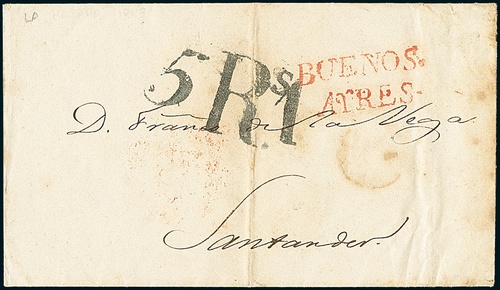 LA
5 Rs. 1
BUENOS.
AYRES.
D. Franco de la Vega
Santander.